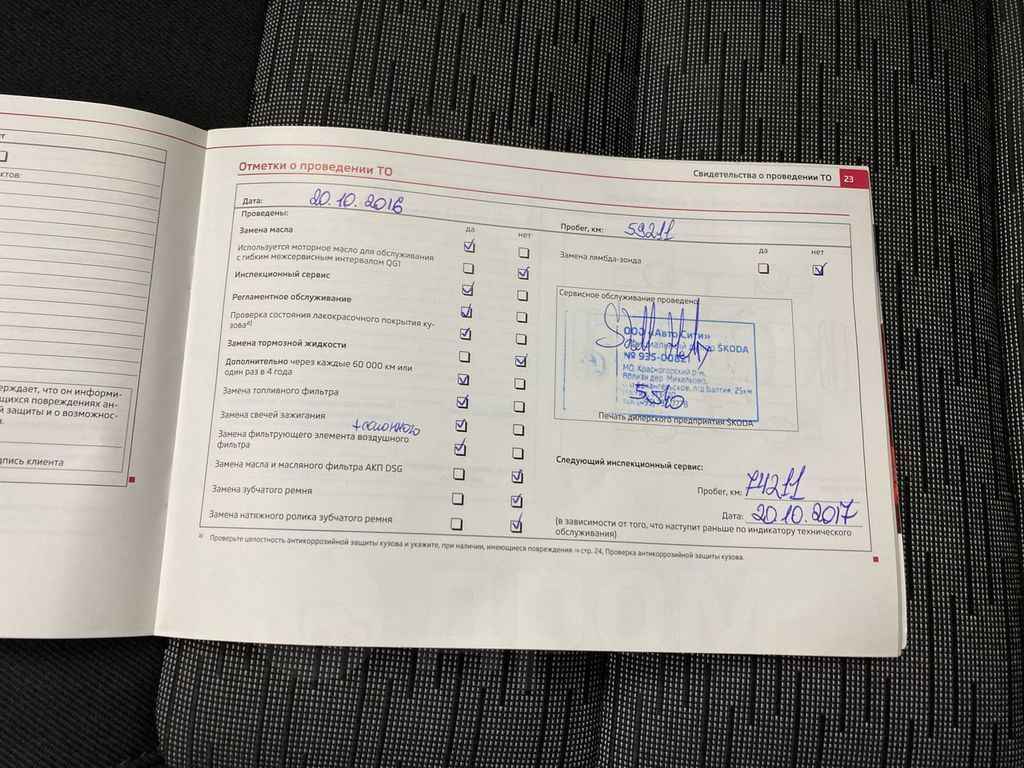 ктов:
ерждает, что он информи-
щихся повреждениях ан-
й защиты и о возможнос-
дпись клиента
Отметки о проведении ТО
Свидетельства о проведении ТО 23
Дата: 20.10.2016
Пробег, км: 59211
Проведены:
да нет
Замена масла
Используется моторное масло для обслуживания
с гибким межсервисным интервалом QG1
Инспекционный сервис
Регламентное обслуживание
Проверка состояния лакокрасочного покрытия ку-
зова а)
Замена тормозной жидкости
Дополнительно через каждые 60 000 км или
один раз в 4 года
Замена топливного фильтра
Замена свечей зажигания
+салонного
Замена фильтрующего элемента воздушного
фильтра
Замена масла и масляного фильтра АКП DSG
Замена зубчатого ремня
Замена натяжного ролика зубчатого ремня
да нет
Замена лямбда-зонда
Сервисное обслуживание проведено
ООО «Авто Сити»
ŠKODA
№ 935-00821
МО, Красногорский р-н,
вблизи дер. Михалково,
а/д Балтия, 25км
Печать дилерского предприятия ŠKODA
Следующий инспекционный сервис:
Пробег, км: 74211
Дата: 20.10.2017
(в зависимости от того, что наступит раньше по индикатору технического
обслуживания)
а) Проверьте целостность антикоррозийной защиты кузова и укажите, при наличии, имеющиеся повреждения ⇒ стр. 24, Проверка антикоррозийной защиты кузова.